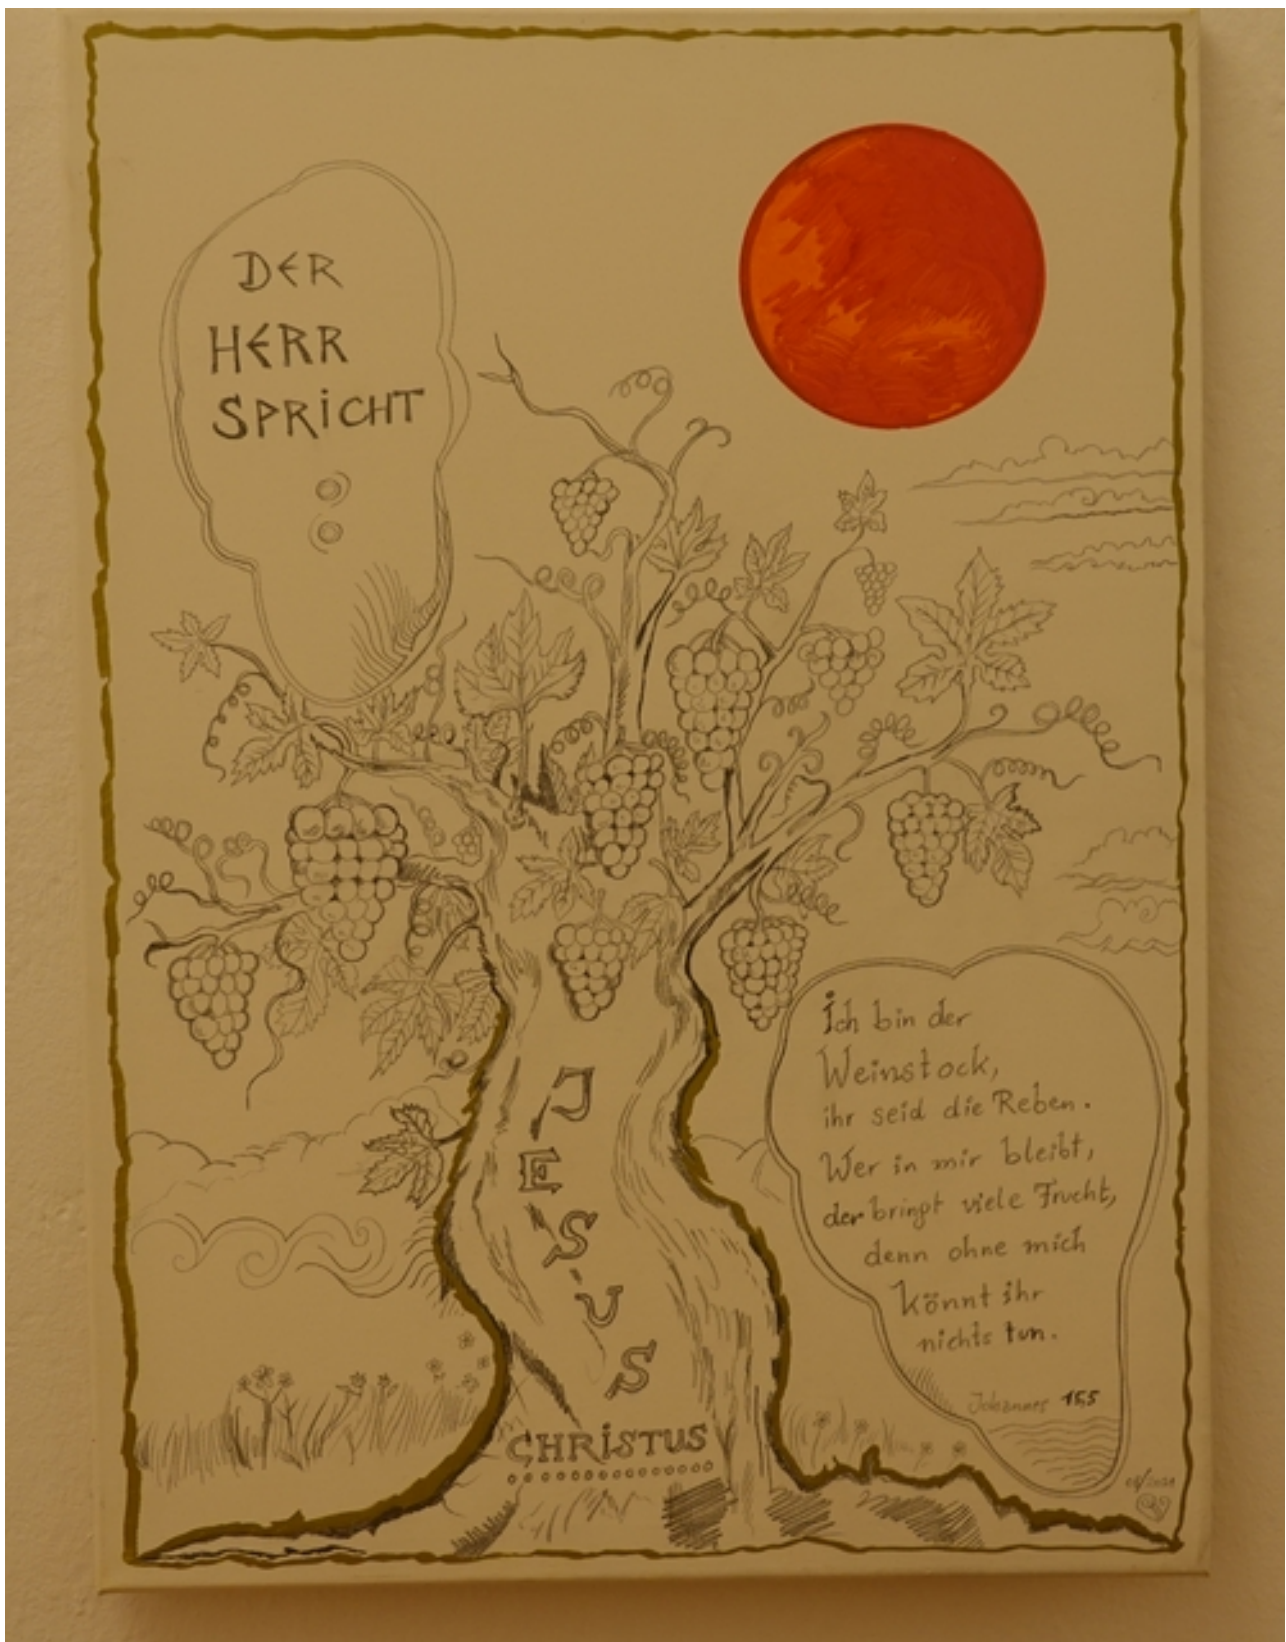 DER
HERR
SPRICHT
:
Ich bin der
Weinstock,
ihr seid die Reben.
Wer in mir bleibt,
der bringt viele Frucht,
denn ohne mich
könnt ihr
nichts tun.
Johannes 15,5
JESUS
CHRISTUS